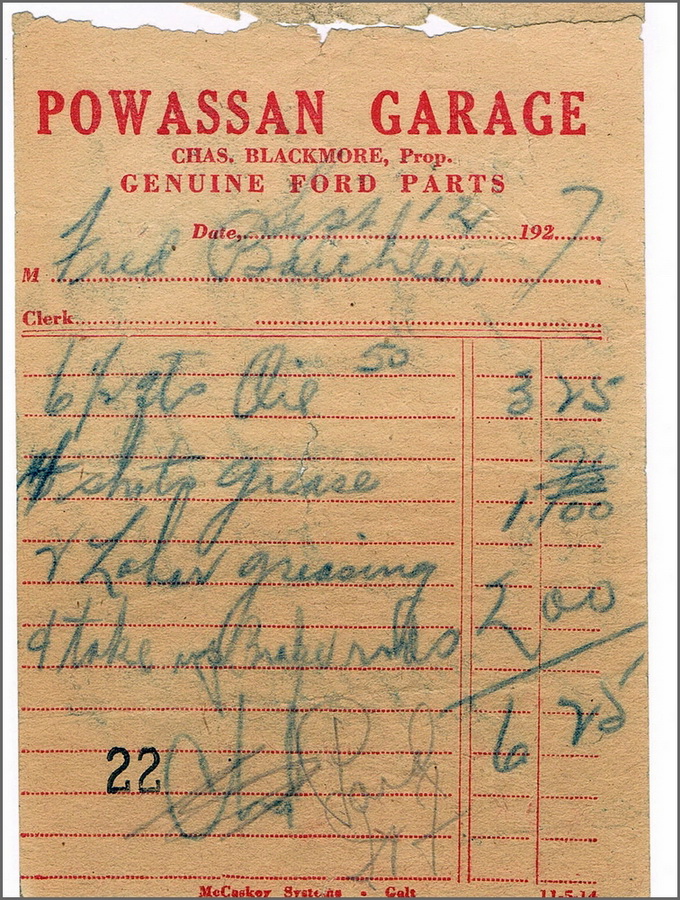 POWASSAN GARAGE
CHAS. BLACKMORE, Prop.
GENUINE FORD PARTS
Date, Sept 12 1927
M Fred
Clerk
6 qts Oil 50 3 25
4 shots grease 1.00
& Labor greasing
& take up Brake rods 2 00
6 25
22
McCaskey Systems - Galt 11-5-14